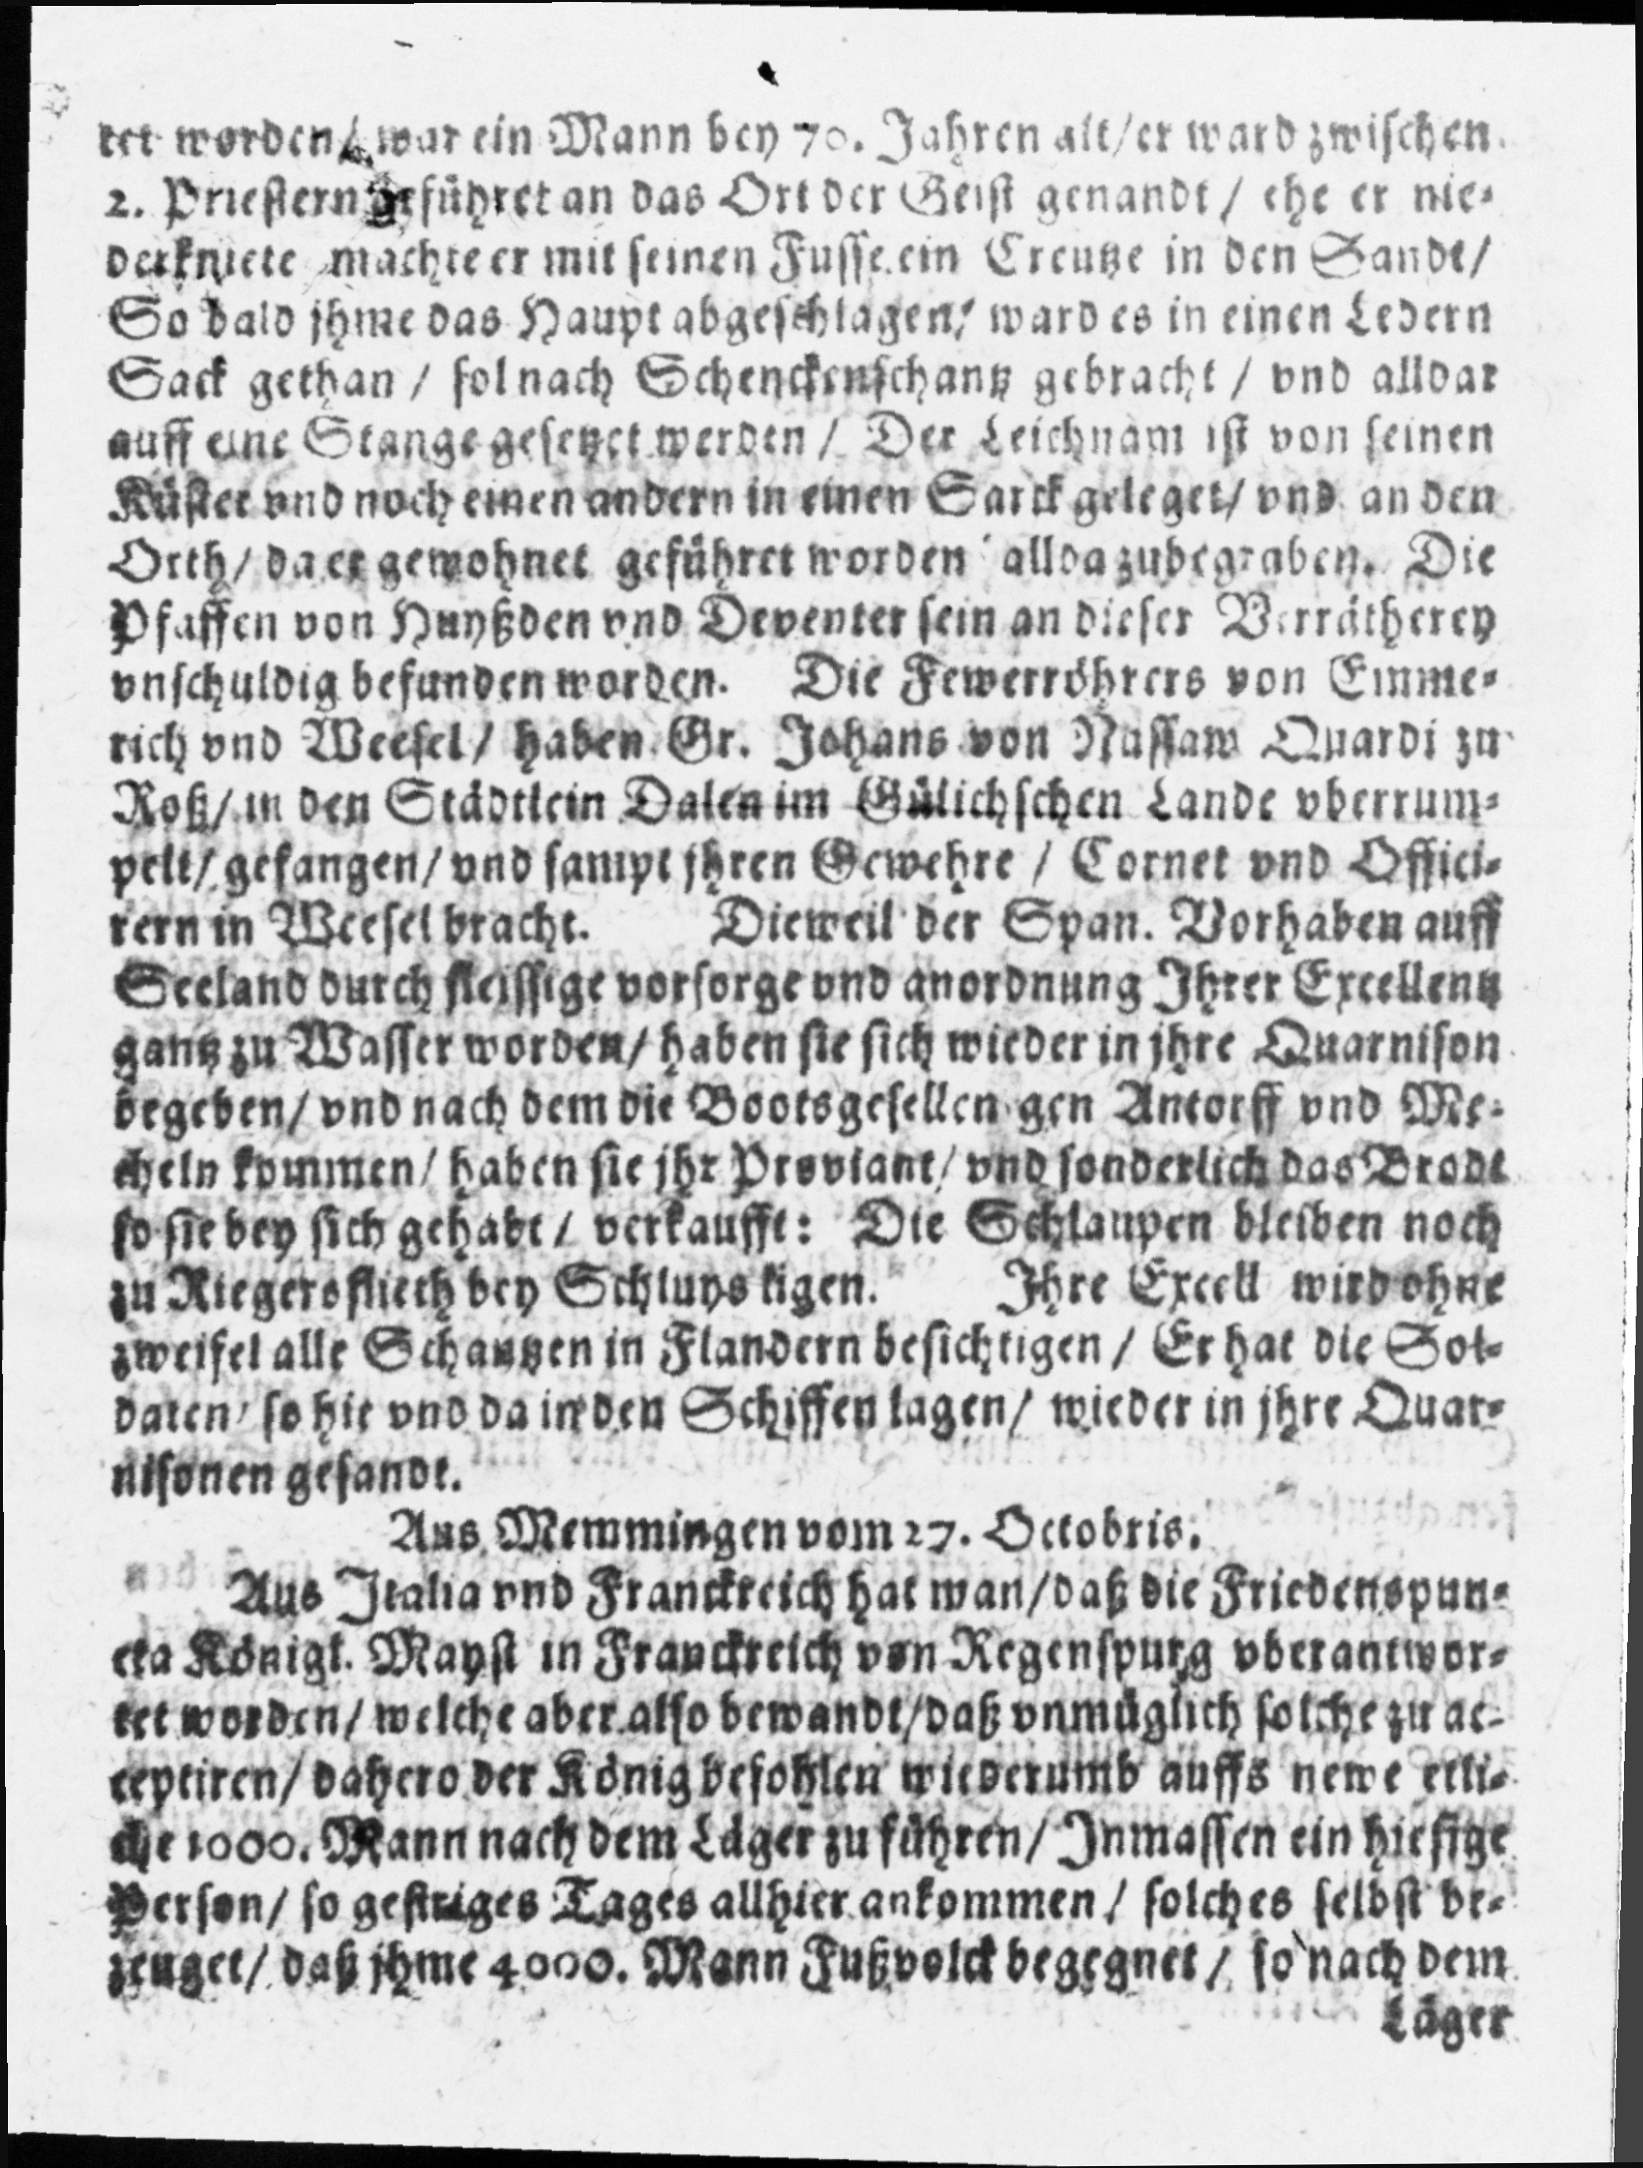 tet worden / war ein Mann bey 70. Jahren alt / er ward zwischen
2. Priestern geführet an das Ort der Geist genandt / ehe er nie-
derkniete machte er mit seinen Fusse ein Creutze in den Sandt /
So bald jhme das Haupt abgeschlagen / ward es in einen Ledern
Sack gethan / sol nach Schenckenschantz gebracht / vnd alldar
auff eine Stange gesetzet werden / Der Leichnam ist von seinen
Küster vnd noch einen andern in einen Sarck geleget / vnd an den
Orth / da er gewohnet geführet worden allda zubegraben. Die
Pfaffen von Huyßden vnd Deventer sein an dieser Verrätherey
vnschuldig befunden worden. Die Fewerröhrers von Emme-
rich vnd Weesel / haben Gr. Johans von Nassaw Quardi zu
Roß / in den Städtlein Dalen im Gülichschen Lande vberrum-
pelt / gefangen / vnd sampt jhren Gewehre / Cornet vnd Offici-
rern in Weesel bracht. Dieweil der Span. Vorhaben auff
Seeland durch fleissige vorsorge vnd anordnung Ihrer Excellentz
gantz zu Wasser worden / haben sie sich wieder in jhre Quarnison
begeben / vnd nach dem die Bootsgesellen gen Antorff vnd Me-
cheln kommen / haben sie jhr Proviant / vnd sonderlich das Brodt
so sie bey sich gehabt / verkaufft: Die Schlaupen bleiben noch
zu Riegersflieth bey Schluys ligen. Ihre Excell wird ohne
zweifel alle Schantzen in Flandern besichtigen / Er hat die Sol-
daten / so hie vnd da in den Schiffen lagen / wieder in jhre Quar-
nisonen gesandt.
Aus Memmingen vom 27. Octobris.
Aus Italia vnd Franckreich hat man / daß die Friedenspun-
cta Königl. Mayst in Franckreich von Regenspurg vberantwor-
tet worden / welche aber also bewandt / daß vnmüglich solche zu ac-
ceptiren / dahero der König befohlen wiederumb auffs newe etli-
che 1000. Mann nach dem Läger zu führen / Inmassen ein hiesige
Person / so gestriges Tages allhier ankommen / solches selbst be-
zeuget / daß jhme 4000. Mann Fußvolck begegnet / so nach dem
Läger